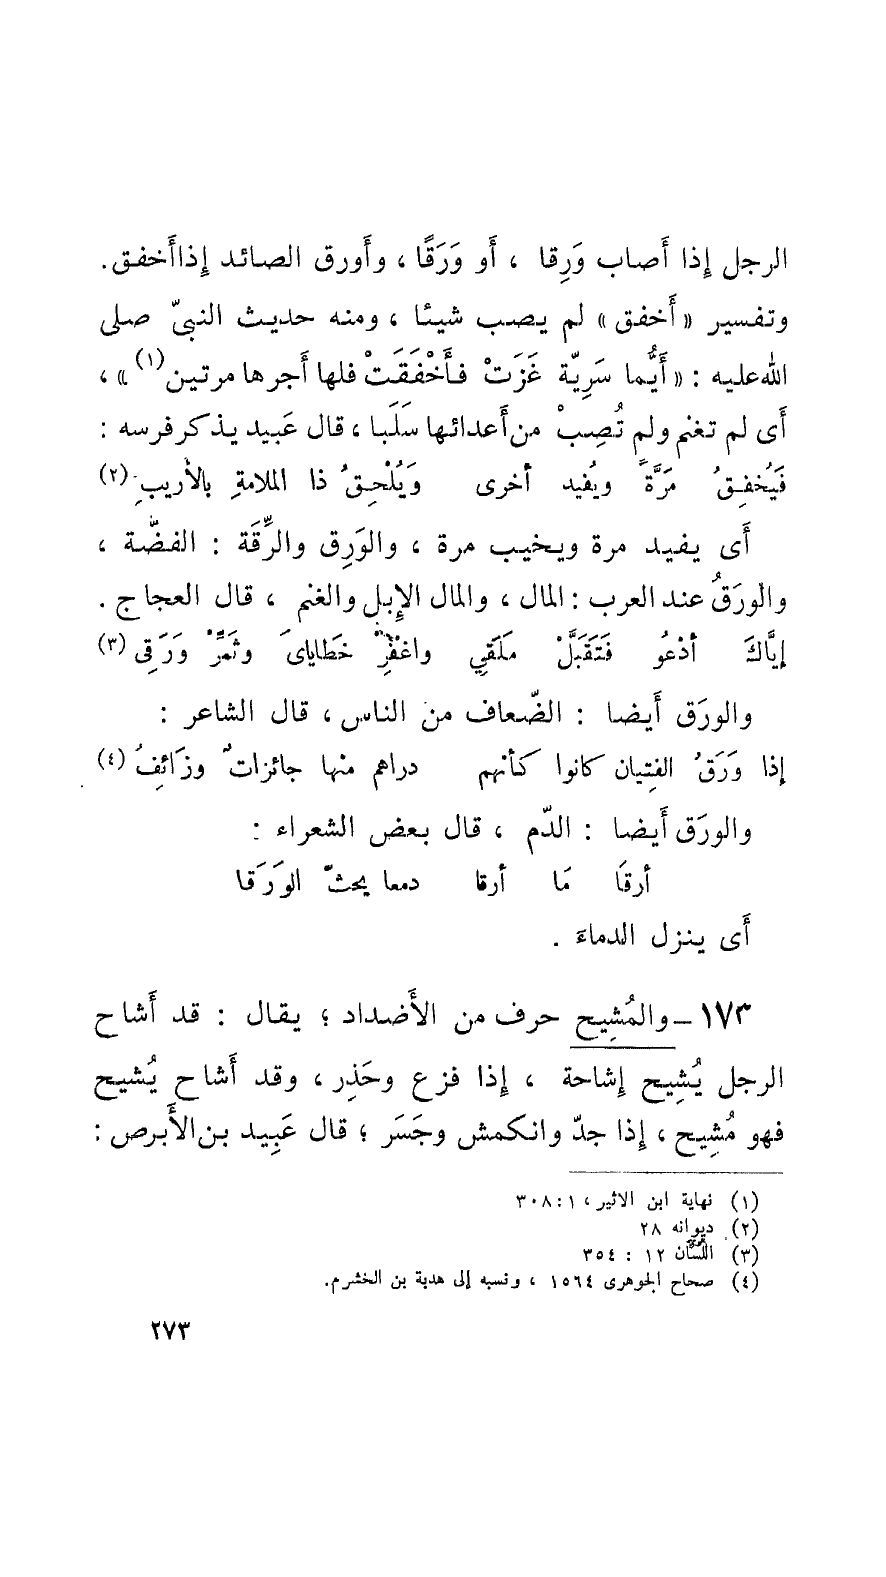 الرجل إذا أصاب وَرِقا ، أَو وَرَقًا ، وأَورق الصائد إذاأَخفق.
وتفسير «أَخفق» لم يصب شيئا ، ومنه حديث النبىّ صلى
الله عليه : «أَيُّما سَرِيّة غَزَتْ فأَخْفَقَتْ فلها أَجرها مرتين(١)» ،
أى لم تغنم ولم تُصِبْ من أَعدائها سَلَبا ، قال عَبيد يذكر فرسه :
فَيُخفِقُ مَرَّةً ويُفيد أخرى وَيُلْحِقُ ذا الملامةِ بالأريبِ(٢)
أَى يفيد مرة ويخيب مرة ، والوَرِق والرِّقَة : الفضّة ،
والورَقُ عند العرب : المال ، والمال الإِبل والغنم ، قال العجاج .
إيَّاكَ أدْعُو فَتَقَبَّلْ مَلَقِي واغْفِرْ خَطاياىَ وثَمِّرْ وَرَقِى (٣)
والورَق أَيضا : الضّعاف من الناس ، قال الشاعر :
إذا وَرَقُ الفِتيان كانوا كأنهم دراهم منها جائزاتٌ وزَائِفُ (٤)
والورَق أَيضا : الدّم ، قال بعض الشعراء :
أرقَا مَا أرقا دمعا يحثّ الوَرَقا
أَى ينزل الدماءَ .
١٧٣ – والمُشِيح حرف من الأَضداد ؛ يقال : قد أَشاح
الرجل يُشِيح إشاحة ، إذا فزع وحَذِر ، وقد أَشاح يُشيح
فهو مُشِيح ، إذا جدّ وانكمش وجَسَر ؛ قال عَبِيد بن الأَبرص :
(١) نهاية ابن الاثير ، ١ : ٣٠٨
(٢) ديوانه ٢٨
(٣) اللسان ١٢ : ٣٥٤
(٤) صحاح الجوهرى ١٥٦٤ ، ونسبه إلى هدبة بن الخشرم.
٢٧٣